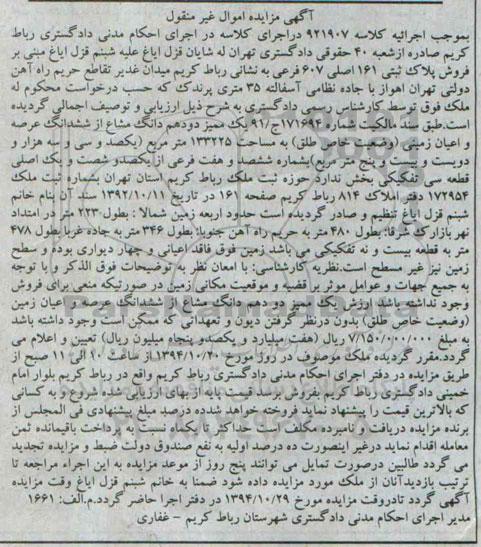 آگهی مزایده اموال غیر منقول
بموجب اجرائیه کلاسه ۹۲۱۹۰۷ دراجرای کلاسه در اجرای احکام مدنی دادگستری رباط
کریم صادره ازشعبه ۴۰ حقوقی دادگستری تهران له شایان قزل ایاغ علیه شبنم قزل ایاغ مبنی بر
فروش پلاک ثبتی ۱۶۱ اصلی ۶۰۷ فرعی به نشانی رباط کریم میدان غدیر تقاطع حریم راه آهن
دولتی تهران اهواز با جاده نظامی آسفالته ۳۵ متری پرندک که حسب درخواست محکوم له
ملک فوق توسط کارشناس رسمی دادگستری به شرح ذیل ارزیابی و توصیف اجمالی گردیده
است.طبق سند مالکیت شماره ۱۷۱۶۹۴ج/۹۱ یک ممیز دودهم دانگ مشاع از ششدانگ عرصه
و اعیان زمینی (وضعیت خاص طلق) به مساحت ۱۳۳۲۲۵ متر مربع (یکصد و سی و سه هزار و
دویست و بیست و پنج متر مربع)بشماره ششصد و هفت فرعی از یکصدو شصت و یک اصلی
قطعه سی تفکیکی بخش ندارد حوزه ثبت ملک رباط کریم استان تهران بشماره ثبت ملک
۱۷۲۹۵۴ دفتر املاک ۸۱۴ رباط کریم صفحه ۱۶۱ در تاریخ ۱۳۹۲/۱۰/۱۱ سند آن بنام خانم
شبنم قزل ایاغ تنظیم و صادر گردیده است حدود اربعه زمین شمالا : بطول ۲۲۳ متر در امتداد
نهر بازارک شرقا: بطول ۴۸۰ متر به حریم راه آهن جنوبا: بطول ۳۴۶ متر به جاده غربا بطول ۴۷۸
متر به قطعه بیست و نه تفکیکی می باشد زمین فوق فاقد اعیانی و چهار دیواری بوده و سطح
زمین نیز غیر مسطح است.نظریه کارشناسی: با امعان نظر به توضیحات فوق الذکر و با توجه
به جمیع جهات و عوامل موثر بر قضیه و موقعیت مکانی زمین در صورتیکه منعی برای فروش
وجود نداشته باشد ارزش یک ممیز دو دهم دانگ مشاع از ششدانگ عرصه و اعیان زمین
(وضعیت خاص طلق) بدون درنظر گرفتن دیون و تعهداتی که ممکن است وجود داشته باشد
به مبلغ ۷/۱۵۰/۰۰۰/۰۰۰ ریال (هفت میلیارد و یکصدو پنجاه میلیون ریال) تعیین و اعلام می
گردد.مقرر گردیده ملک موصوف در روز مورخ ۱۳۹۴/۱۰/۳۰از ساعت ۱۰ الی ۱۱ صبح از
طریق مزایده در دفتر اجرای احکام مدنی دادگستری رباط کریم واقع در رباط کریم بلوار امام
خمینی دادگستری رباط کریم بفروش برسد قیمت پایه از بهای ارزیابی شده شروع و به کسانی
که بالاترین قیمت را پیشنهاد نماید فروخته خواهد شدده درصد مبلغ پیشنهادی فی المجلس از
برنده مزایده دریافت و نامبرده مکلف است حداکثر تا یکماه نسبت به پرداخت باقیمانده ثمن
معامله اقدام نماید درغیر اینصورت ده درصد اولیه به نفع صندوق دولت ضبط و مزایده تجدید
می گردد طالبین درصورت تمایل می توانند پنج روز از موعد مزایده به این اجراء مراجعه تا
ترتیب بازدیدآنان از ملک مورد مزایده داده شود ضمنا به خانم شبنم قزل ایاغ وقت مزایده
آگهی گردد تادروقت مزایده مورخ ۱۳۹۴/۱۰/۲۹ در دفتر اجرا حاضر گردد.م.الف: ۱۶۶۱
مدیر اجرای احکام مدنی دادگستری شهرستان رباط کریم - غفاری
ParsNamadData